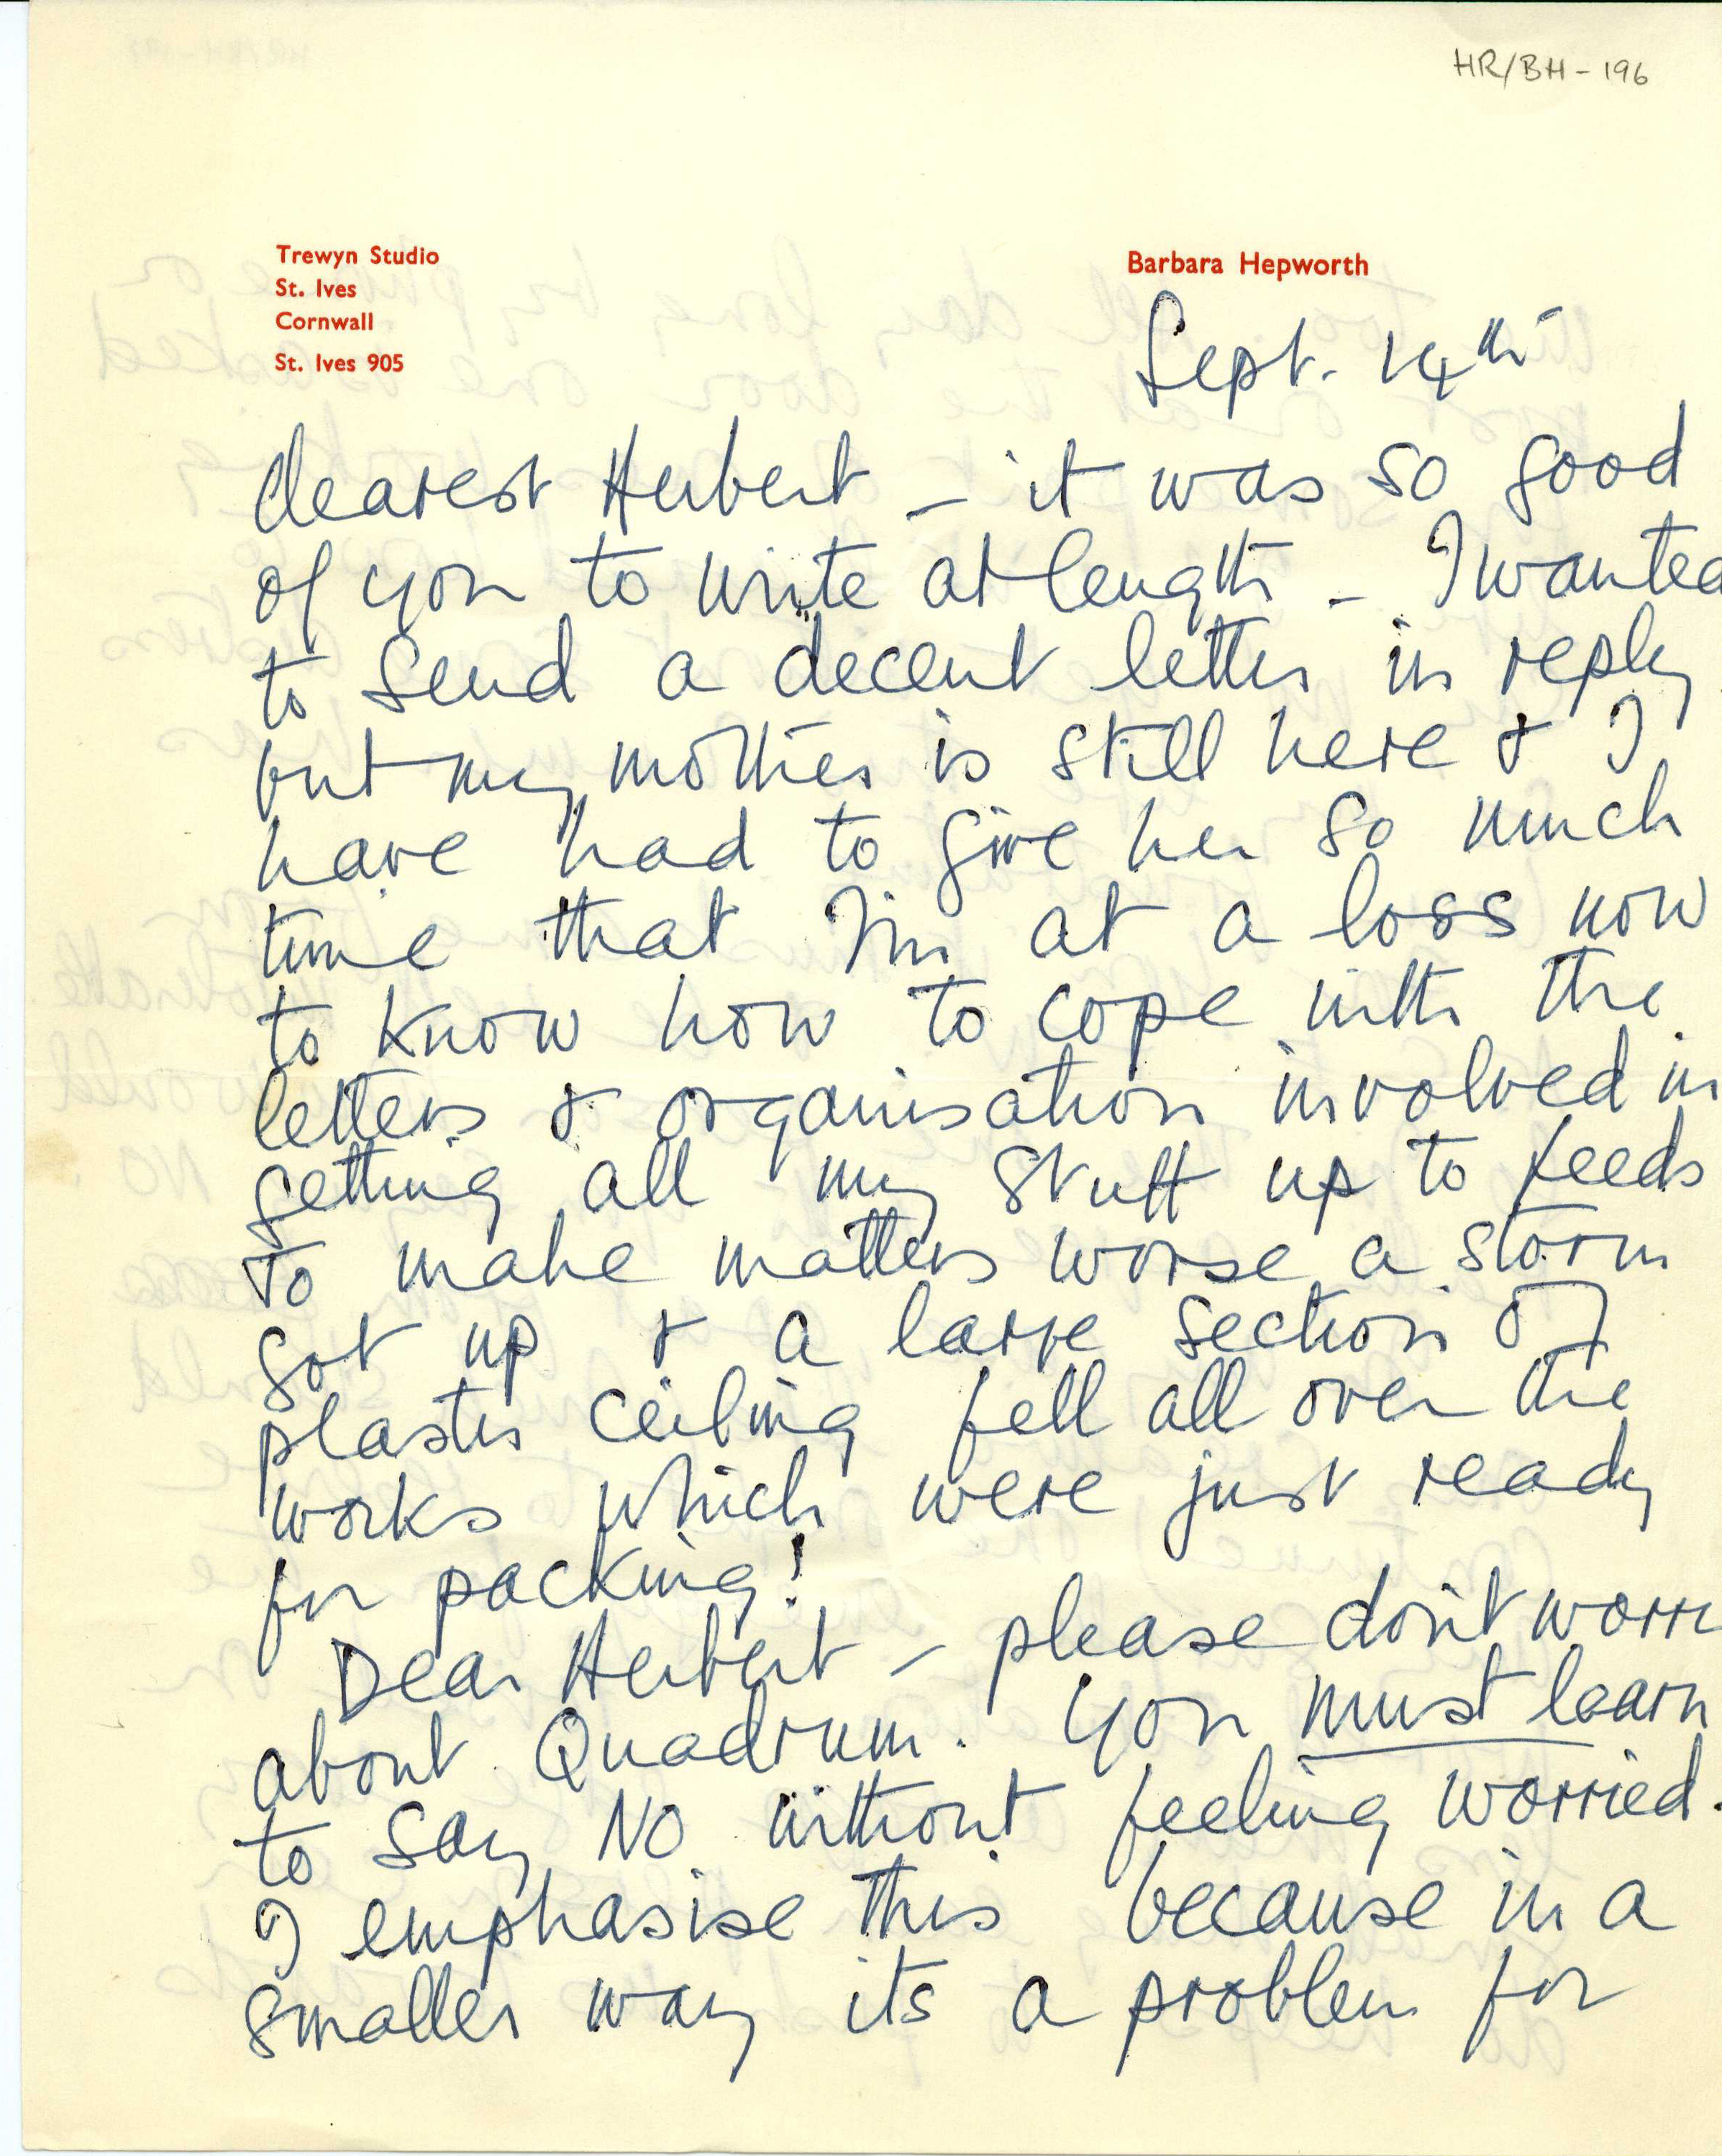 HR/BH - 196
Trewyn Studio
St. Ives
Cornwall
St. Ives 905
Barbara Hepworth
Sept. 14th
dearest Herbert – it was so good
of you to write at length – I wanted
to send a decent letter in reply
but my mother is still here & I
have had to give her so much
time that I'm at a loss now
to know how to cope with the
letters & organisation involved in
getting all my stuff up to Leeds
To make matters worse a storm
got up & a large section of
plaster ceiling fell all over the
works which were just ready
for packing!
Dear Herbert – please don't worr
about Quadrum. You must learn
to say NO without feeling worried.
I emphasise this because in a
smaller way its a problem for